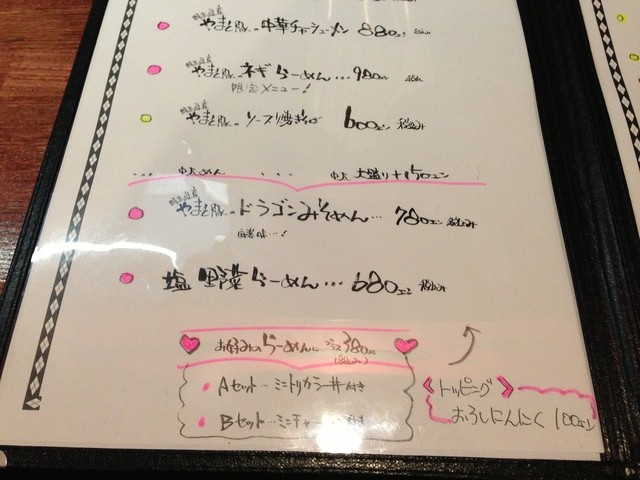 やまと豚の 中華チャーシューメン 880円 税込み
やまと豚の ネギらーめん… 980円 税込み
限定メニュー!
やまと豚の ソース焼そば 600円 税込み
… 中太めん … 中太 大盛り +150円
やまと豚の ドラゴンみそらーめん… 780円 税込み
塩野菜らーめん… 680円 税込み
お好みのらーめんに プラス 380円
(税込み)
Aセット… ミニトリカラー丼付き
Bセット… ミニチャー 付き
《トッピング》
おろしにんにく 100円